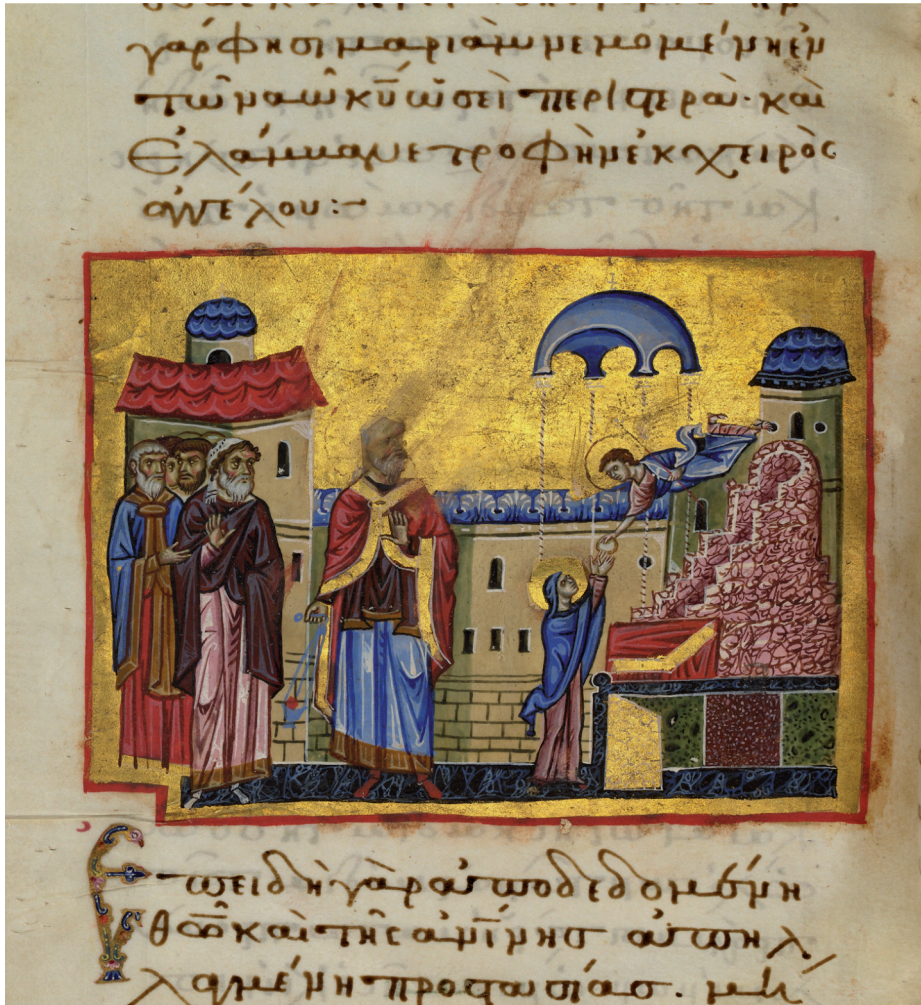 γὰρ φησὶ μαριὰμ νεμομένη ἐν
τῶ ναῶ κ̅υ̅ ὡσεὶ περιστερὰ· καὶ
ἐλάμβανε τροφὴν ἐκ χειρὸς
ἀγγέλου:-
Ἐπειδὴ γὰρ ἀποδεδομένη
θ̅ω̅ καὶ τῆς ἀ̅ν̅ι̅νης ἀπηλ
λαγμένη προστασίας. μὴ